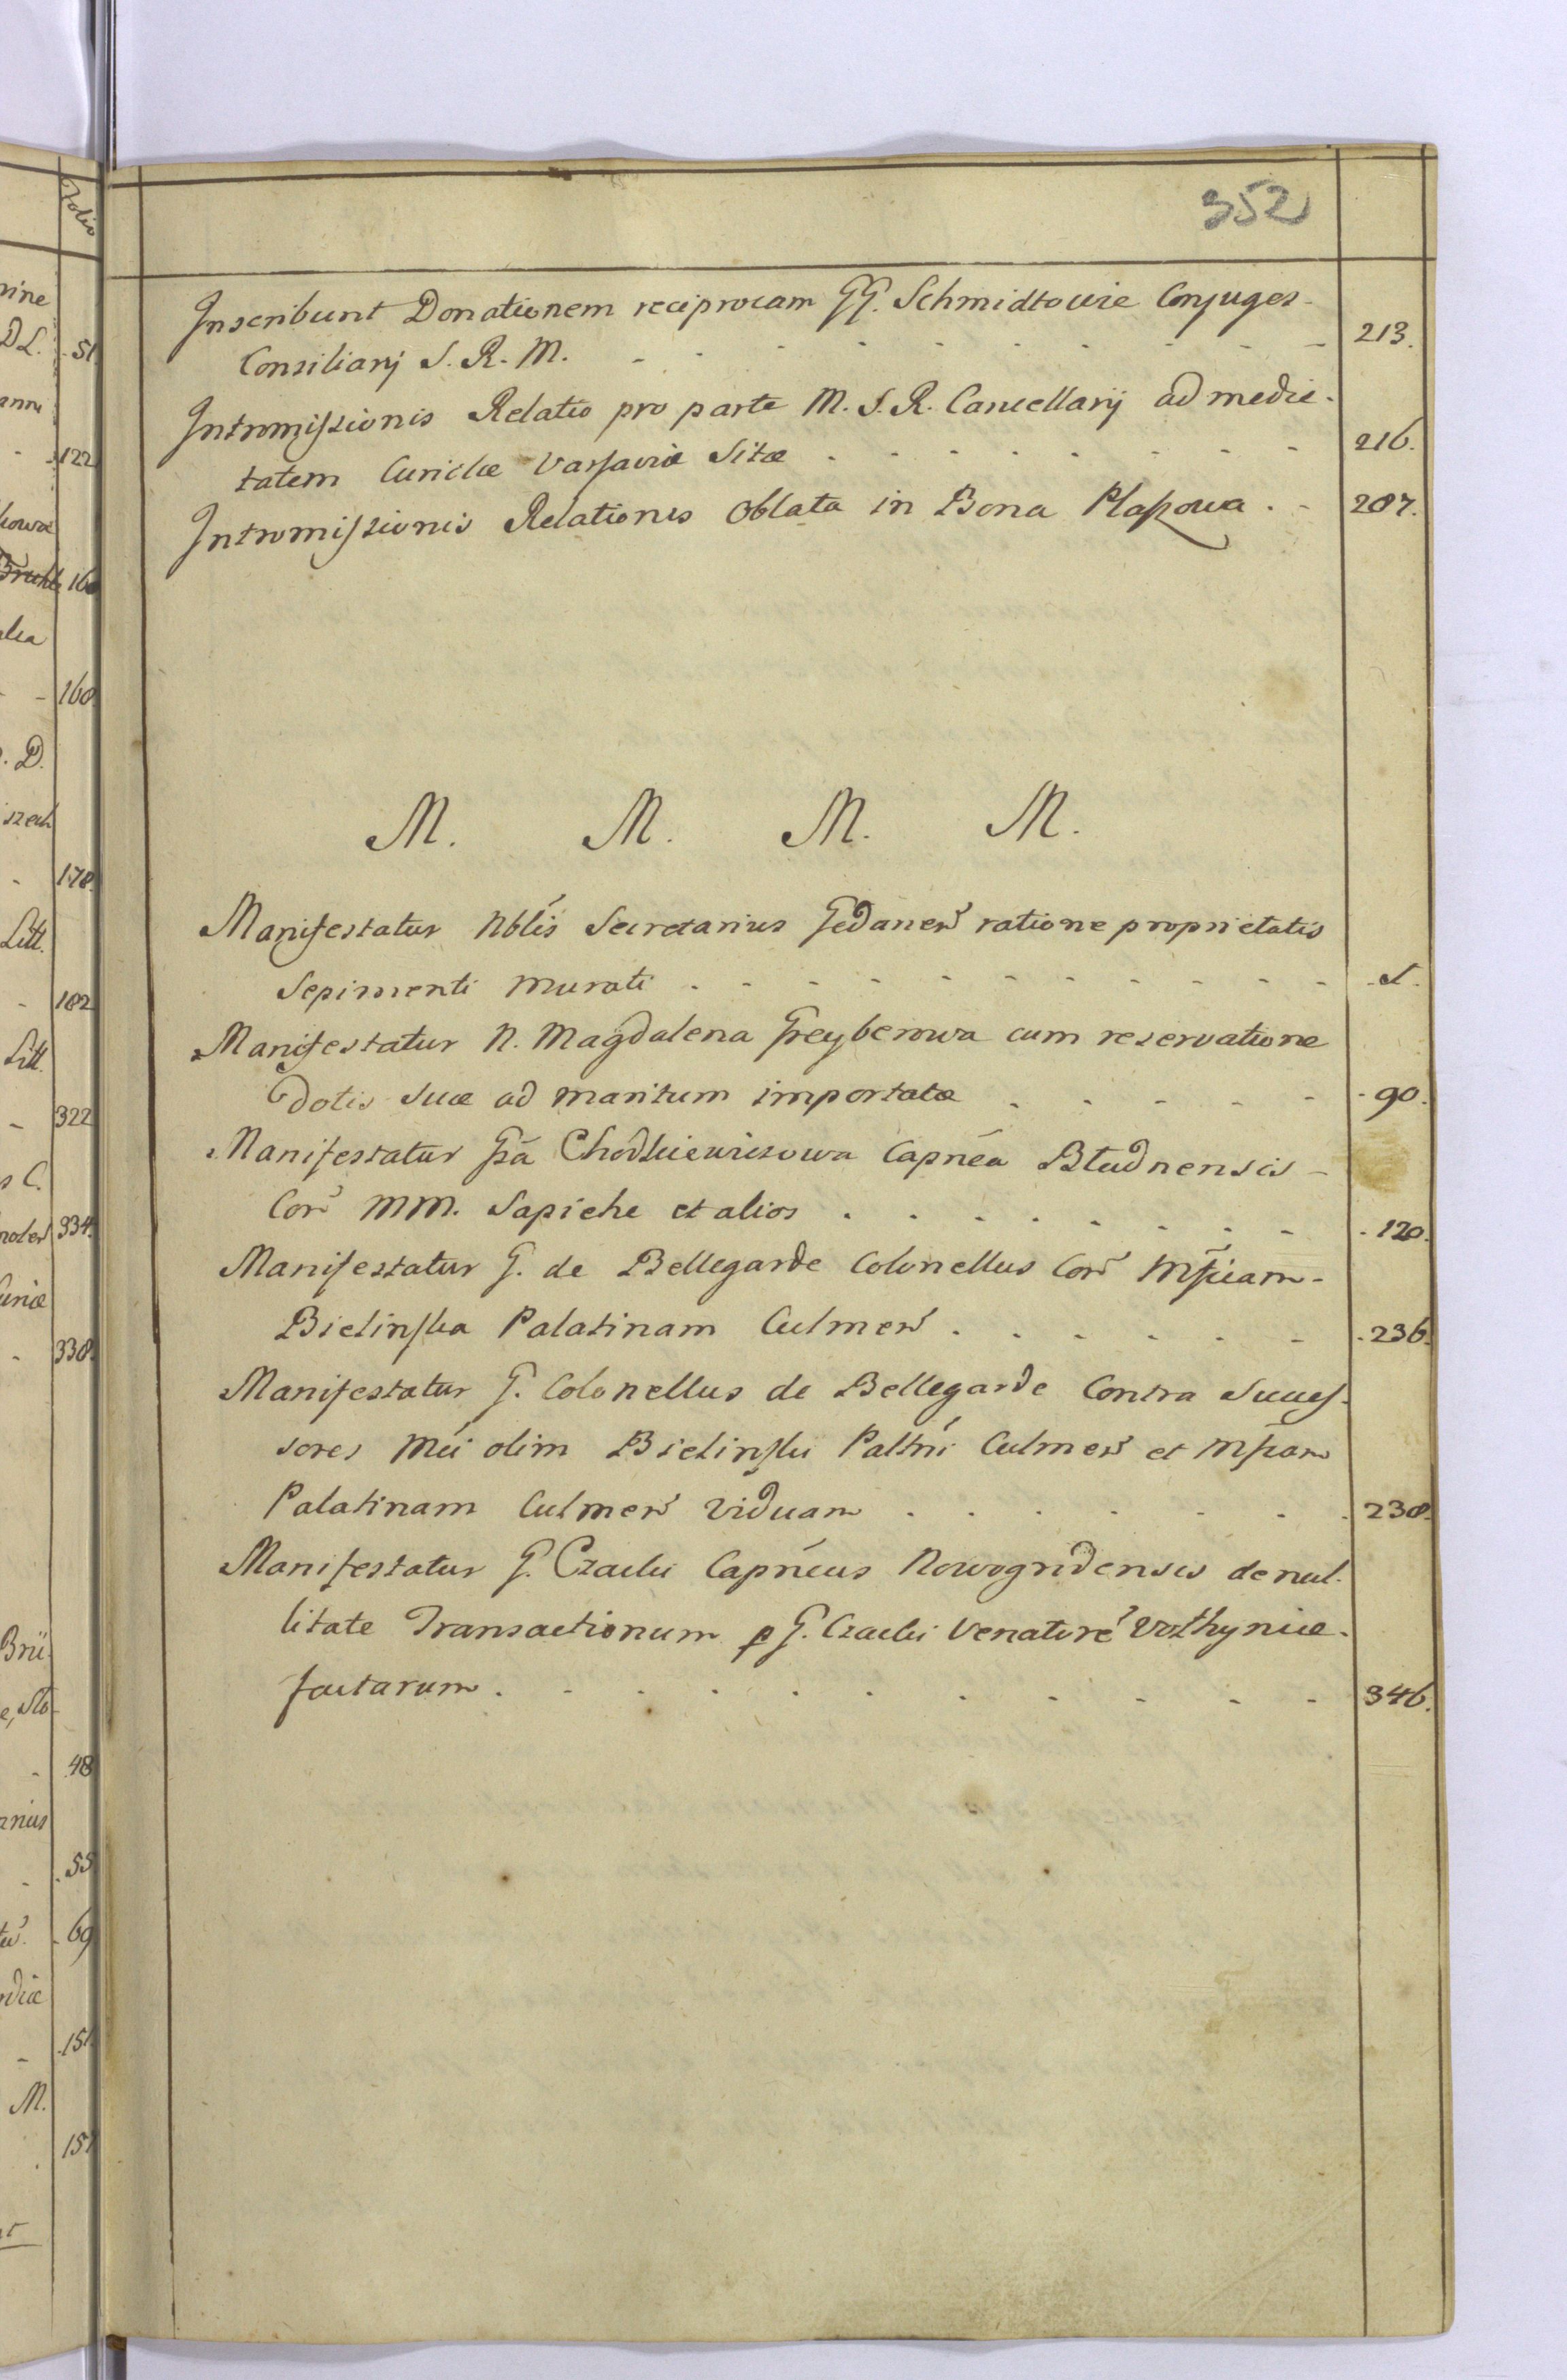 352
Inscribunt Donationem reciprocam GG. Schmidtowie Conjuges -
Consiliarij S. R. M. - - - - - - - - - - 213.
Intromissionis Relatio pro parte M. S. R. Cancellarij ad medie-
tatem Curiclæ Varsaviæ Sitæ . - - - - - - - - 216.
Intromissionis Relationis Oblata in Bona Plaskowa . - 287.
M. M. M. M.
Manifestatur Nblis Secretarius Gedanen ratione proprietatis
Sepimenti murati . - - - - - - - - - -
Manifestatur N. Magdalena Freyberowa cum reservatione
dotis suæ ad maritum importatæ . - - - - - 90.
Manifestatur Gsa Chodkiewiczowa Capnea Błudnensis -
Con MM. Sapiehe et alios . . . . . . . - 120.
Manifestatur G. de Bellegarde Colonellus Con Mficam -
Bielinska Palatinam Culmen . . - - - - 236.
Manifestatur G. Colonellus de Bellegarde Contra Succes-
sores Mci olim Bielinski Paltni Culmen et
Palatinam Culmen Viduam . . . . - - . 238.
Manifestatur G. Czacki Capneus Nowogrodensis de nul-
litate Transactionum p G. Czacki Venatore Wolhyniæ -
factarum . - - - - - - - - - - 346.
Folio
51
122
160
160
178.
Litt.
182
Litt.
322
334.
338.
48
55
69
151
M.
151